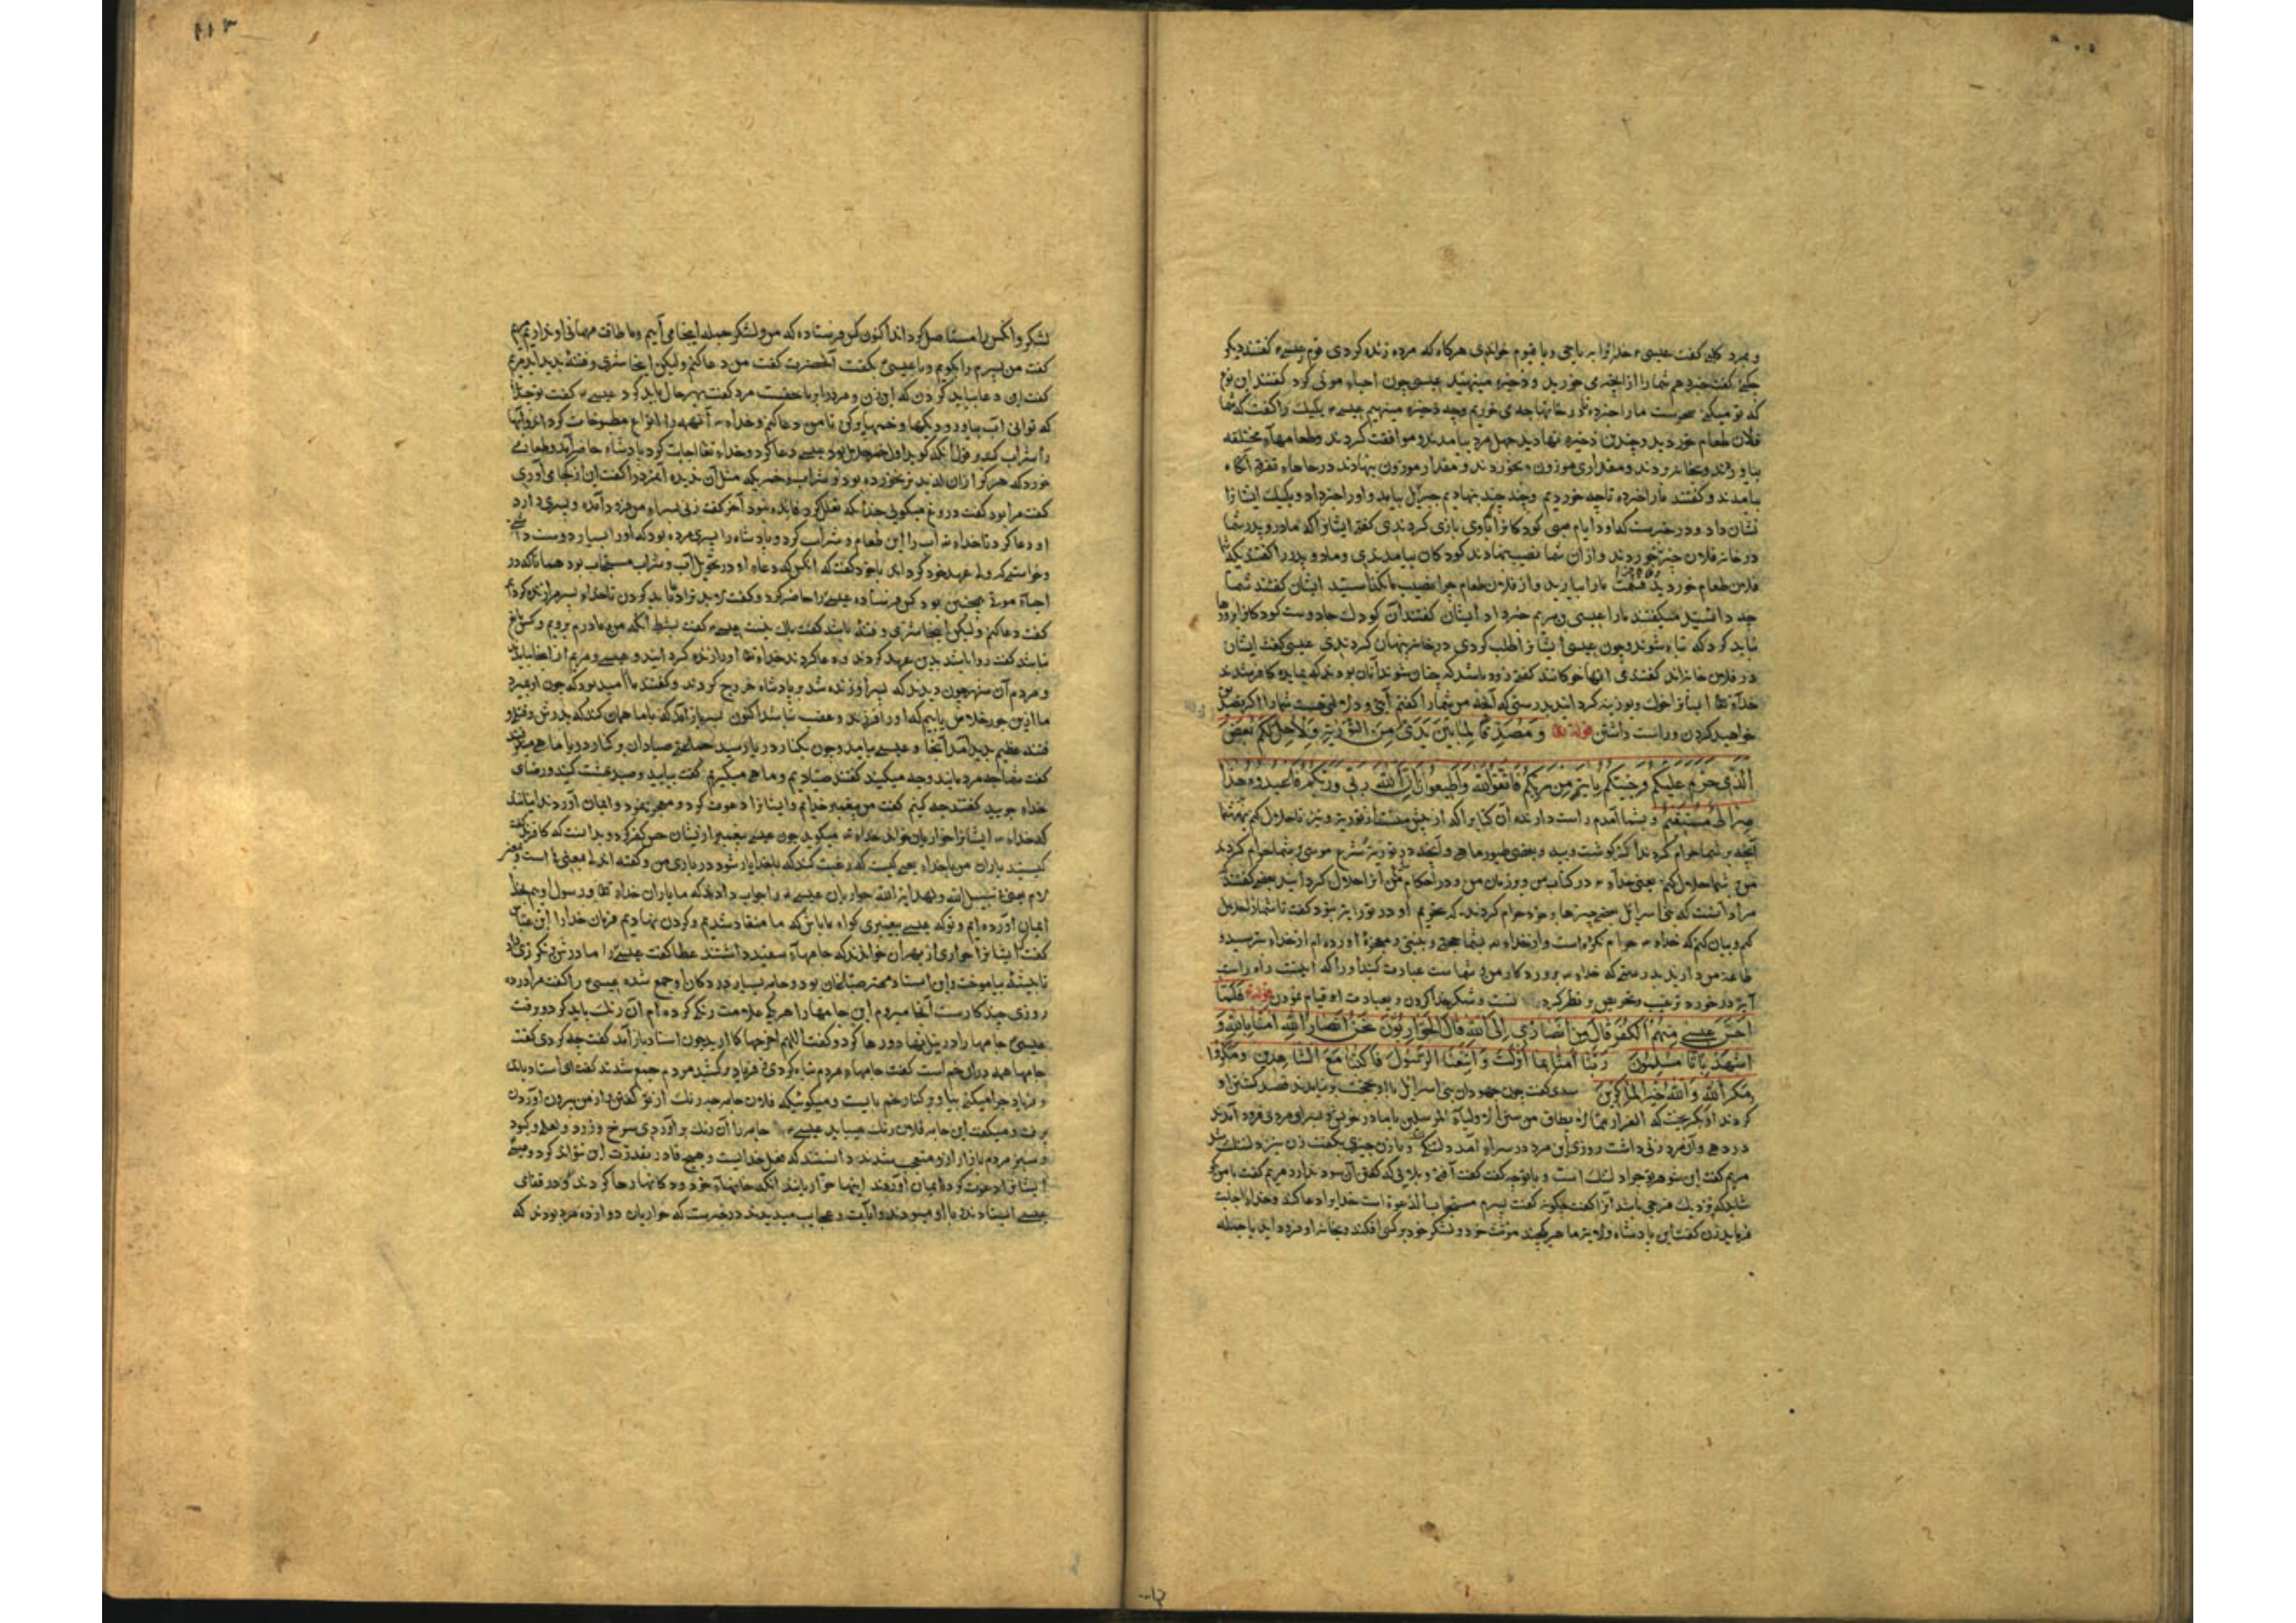 و بمرد کلبی گفت عیسی خدایرا بیا حی و یا قیوم خواندی هرگاه که مرده زنده کردی قوم عیسی گفتند دیگر
گفت خبر دهم شما را از آنچه می خورید و ذخیره مینهید عیسی چون احیاء موتی کرد گفتند این نوع
که تو میکنی سحرست ما را خبر ده تا در خانها چه می خوریم و چه ذخیره مینهیم عیسی یکیک را گفت که شما
فلان طعام خوردید و چندین ذخیره نهادید چهل مرد بیامدند و موافقت کردند و طعامهاء مختلفه
بیاوردند و بخانه بردند و مقداری موزون بخوردند و مقدار موزون بنهادند در جاهاء متفرق آنگاه
بیامدند و گفتند ما را خبر ده تا چه خوردیم و چند نهادیم جبرئیل بیامد و او را خبر داد و یکیک ایشانرا
نشان داد و در خبرست که او در ایام صبی کودکانرا با وی بازی کردندی گفتی ایشانرا که مادر و پدر شما
در خانه فلان چیز خوردند و از آن شما نصیب نهادند کودکان بیامدندی و مادر و پدر را گفتندی که شما
فلان طعام خوردید ما را بیارید و از فلان طعام چرا نصیب ما نگذاشتید ایشان گفتند شما
چه دانستید میگفتند ما را عیسی بن مریم خبر داد ایشان گفتند آن کودک جادوست کودکانرا
نباید کرد که تباه شوند و چون عیسی ایشانرا طلب کردی در خانه پنهان کردندی عیسی گفت ایشان
در فلان خانه اند گفتندی آنها خوکانند گفتی زود باشد که چنان شوند
خدای تعا ایشانرا خوک و بوزینه گردانید بدرستی که آنچه من شما را گفتم آیتی و دلالتی هست شما را اگر تصدیق
خواهید کردن و راست داشتن قوله تعا وَمُصَدِّقًا لِمَا بَیْنَ یَدَیَّ مِنَ التَّوْرٰیةِ وَلِاُحِلَّ لَکُمْ بَعْضَ
الَّذِی حُرِّمَ عَلَیْکُمْ وَجِئْتُکُمْ بِاٰیَةٍ مِنْ رَبِّکُمْ فَاتَّقُوا اللّٰهَ وَاَطِیعُونِ اِنَّ اللّٰهَ رَبِّی وَرَبُّکُمْ فَاعْبُدُوهُ هٰذَا
صِرَاطٌ مُسْتَقِیمٌ و بشما آمدم راست دارنده آن کتابرا که از پیش منست از توریة و نیز تا حلال کنم بهری شما
آنچه بر شما حرام کردند از گوشت و پیه و بعضی طیور و ماهی و آنچه در توریة بشرع موسی بر شما حرام کردند
من بر شما حلال کنم یعنی خدای در کتاب من و بر زبان من و در احکام من آنرا حلال گردانید بعضی گفتند
مراد آنست که بنی اسرائیل بعضی چیزها بر خود حرام کردند که تحریم او در تورایة نبود گفت تا شما را حلال
کنم و بیان کنم که خدای حرام نکرده است و از خدای بشما حجتی و بینتی و معجزه آورده ام از خدای بترسید و
طاعة من دارید بدرستی که خدای پروردگار من و شماست عبادت کنید او را که اینست راه راست
آیة در خورد ترغیب و تحریص و نظر کرد و شکر خدا کردن و بعبادت او قیام نمودن قوله تعا فَلَمَّا
اَحَسَّ عِیسٰی مِنْهُمُ الْکُفْرَ قَالَ مَنْ اَنْصَارِی اِلَی اللّٰهِ قَالَ الْحَوَارِیُّونَ نَحْنُ اَنْصَارُ اللّٰهِ اٰمَنَّا بِاللّٰهِ وَ
اشْهَدْ بِاَنَّا مُسْلِمُونَ رَبَّنَا اٰمَنَّا بِمَا اَنْزَلْتَ وَاتَّبَعْنَا الرَّسُولَ فَاکْتُبْنَا مَعَ الشَّاهِدِینَ وَمَکَرُوا
وَمَکَرَ اللّٰهُ وَاللّٰهُ خَیْرُ الْمَاکِرِینَ سدی گفت چون جهودان بنی اسرائیل قصد کشتن او
کردند او بگریخت که الفرار مما لا یطاق من سنن الاولیاء المرسلین با مادر خویش بسرای مردی فرود آمدند
در دهی و آن مرد زنی داشت روزی این مرد در سرای آمد دلتنگ و با زن چیزی بگفت زن نیز دلتنگ شد
مریم گفت این شوهر تو چرا دلتنگ است و با تو چه گفت گفت آفتی و بلائی که گفتن آن سود ندارد مریم گفت با من بگو
شاید که نزدیک من فرجی باشد آنرا گفت چگونه گفت پسرم مستجاب الدعوة است خدایرا دعا کند و خدای اجابت
فرماید زن گفت این پادشاه ولایة ما هر یکچند مؤنت خود و لشکر خود بر کسی افکند و بخانه او فرود آید با جمله
لشکر و آنکس را مستأصل گرداند اکنون کس فرستاده که من و لشکر جمله اینجا می آییم و ما طاقت مهمانی او نداریم مریم
گفت من پسرم را بگویم و با عیسی بگفت آنحضرت گفت من دعا کنم ولیکن اینجا شری و فتنه پدید آید مریم
گفت این دعا بباید کردن که این زن و مرد را بر ما حقست مرد گفت بهر حال باید کرد عیسی گفت تو چندان
که توانی آب بیاور و دیگها و خمها پر کن تا من دعا کنم و خدای آنهمه را انواع مطبوخات گرداند و آبها
را شراب کند دعا کرد و خدای تعا اجابت کرد پادشاه حاضر آمد و طعامی
خورد که هرگز از آن لذیذتر نخورده بود و شراب و خمر که مثل آن ندیده آنمرد را گفت این از کجا می آوری
گفت مرا بود گفت دروغ میگویی آخر گفت زنی بسرای من فرود آمده و پسری دارد
او دعا کرد تا خدای آب را این طعام و شراب کرد و پادشاه را پسری مرده بود که او را بسیار دوست داشتی
و خواستی که ولی عهد خود گرداند با خود گفت که آنکس که دعاء او در تحویل آب و شراب مستجاب بود همانا که در
احیاء موتی همچنین بود کس فرستاده عیسی را حاضر کرد و گفت لابد ترا دعا باید کردن تا خدای پسر مرا زنده کند
گفت دعا کنم ولیکن اینجا شری و فتنه باشد گفت باک نیست عیسی گفت بشرط آنکه من و مادرم برویم و کس مانع
نباشد گفت روا باشد بدین عهد کردند و دعا کردند خدای تعا او را زنده گردانید و عیسی و مریم از آنجا برفتند
و مردم آن شهر چون دیدند که پسر او زنده شد بر پادشاه خروج کردند و گفتند ما را امید بود که چون او بمیرد
ما ازین جور خلاص یابیم که او را فرزند و عقب نباشد اکنون پسر باز آمد که با ما همان کند که پدرش
فتنه عظیم پدید آمد آنجا و عیسی بیامد و چون بکنار دریا رسید جماعتی صیادان بر کنار دریا ماهی میگرفتند
گفت شما چه مردمانید و چه میکنید گفتند صیادیم و ماهی میگیریم گفت بیایید و صید بهشت کنید و رضای
خدای جویید گفتند چه کنیم گفت من پیغمبر خدایم و ایشانرا دعوت کرد و معجز بنمود و ایمان آوردند
که خدای ایشانرا حواریان خواند خدای میگوید چون عیسی پیغمبر از ایشان حس کفر کرد و بدانست که کافرند گفت
کیستند یاران من با خدای یعنی کیست که رغبت کند که با خدا یار شود در یاری من و گفته اند الی بمعنی مع است
لام یعنی فی سبیل الله و لهدایة الله حواریان عیسی را جواب دادند که ما یاران خدای تعا و رسول اوییم بخدا
ایمان آورده ایم و تو که عیسی پیغمبری گواه ما باش که ما منقاد شدیم و گردن نهادیم فرمان خدا را ابن عباس
گفت ایشانرا حواری از بهر آن خواندند که جامهاء سفید داشتند عطا گفت عیسی را مادرش برنگرزی داد
تا پیشه بیاموخت و این استاد مهتر صباغان بود و جامه بسیار در دکان او جمع شده عیسی را گفت مرا در ده
روزی چند کارست آنجا میروم این جامها را هر یکی علامت رنگ کرده ام آن رنگ باید کرد و برفت
عیسی جامها را در نیل رها کرد و گفت اللهم اخرجها کما ارید چون استاد باز آمد گفت چه کردی گفت
جامها همه در آن خم است گفت جامهاء مردم تباه کردی و فریاد برکشید مردم جمع شدند گفت ای استاد
فریاد چرا میکنی بیا و بر کنار خم بایست و میگوی که فلان جامه چه رنگ از تو گفتن و از من بیرون آوردن
برفت و میگفت این جامه فلان رنگ میباید عیسی جامه را آن رنگ برآوردی سرخ و زرد و لعل و کبود
و سبز مردم بازار ازو متعجب شدند دانستند که فعل خدایست و هیچ قادر بقدرت این نتواند کرد و عیسی
ایشانرا دعوت کرد و ایمان آوردند اینها حواریانند آنگه خانهاء خود و دکانها رها کردند و در قفای
عیسی ایستادند و با او میبودند و آیات و عجایب میدیدند در خبرست که حواریان دوازده مرد بودند که